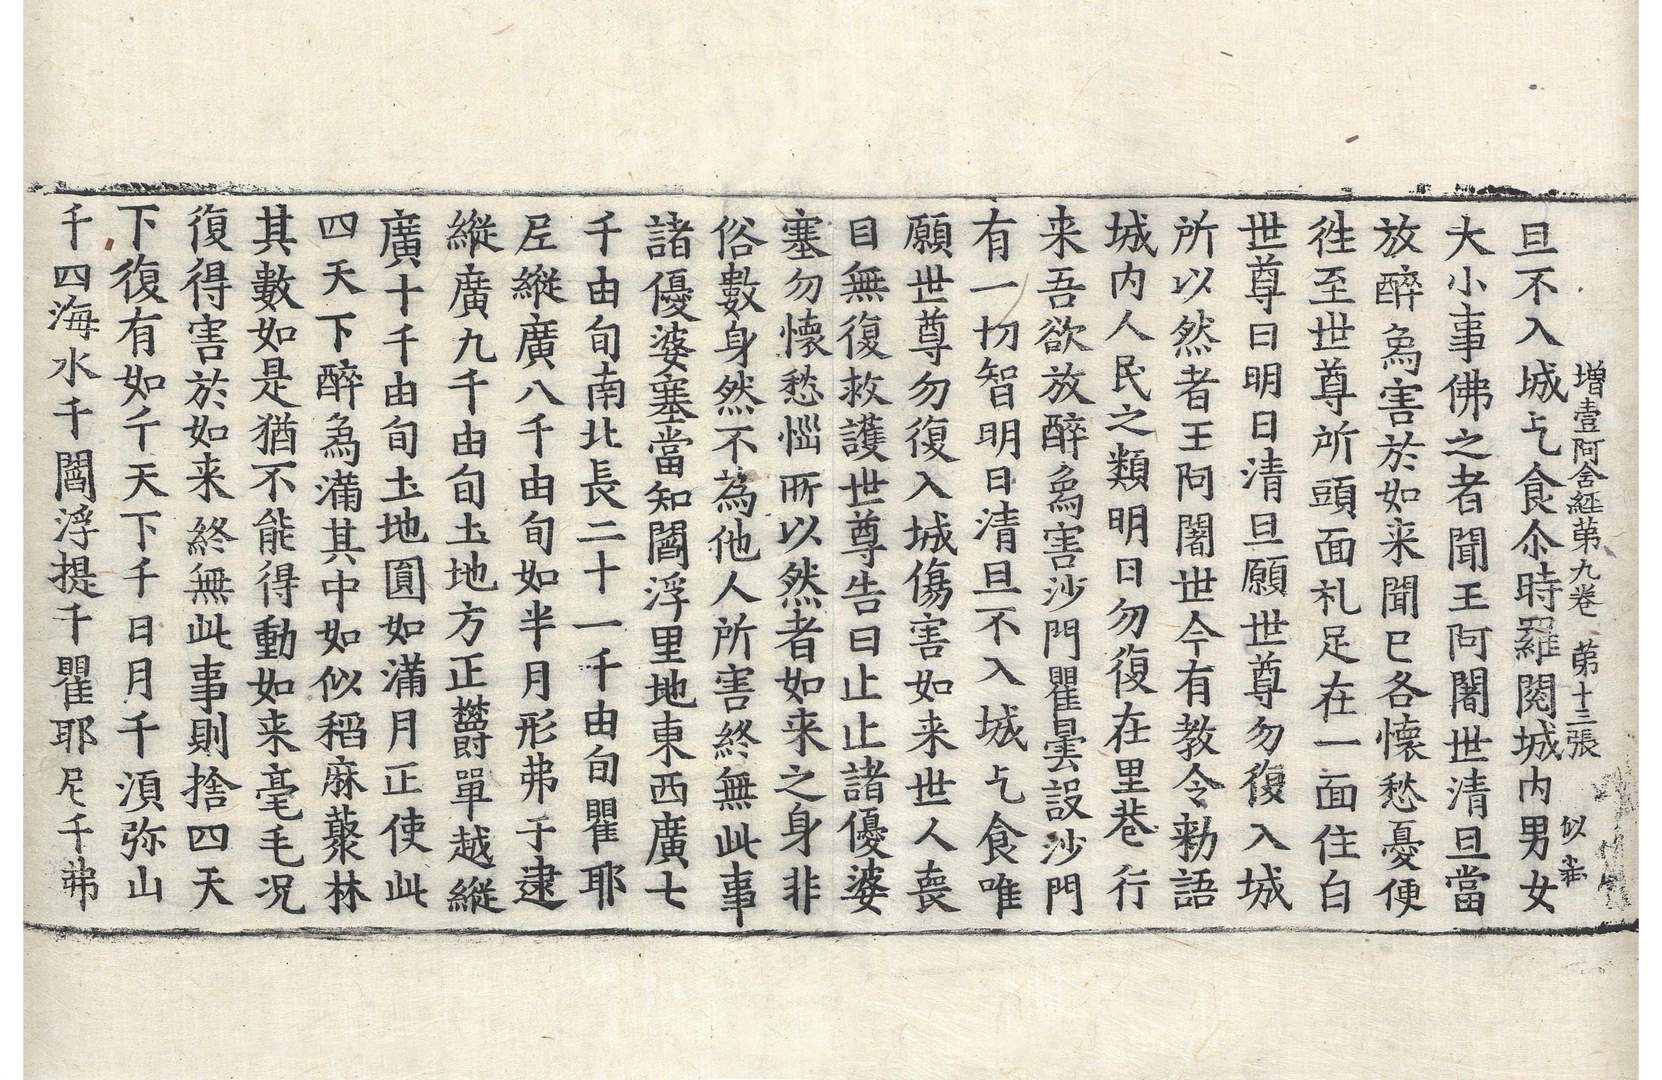 增壹阿含經苐九卷　苐十三張　似
旦不入城乞食尒時羅閱城内男女
大小事佛之者聞王阿闍世清旦當
放醉為害於如来聞已各懷愁憂便
徃至世尊所頭面礼足在一面住白
世尊曰明日清旦願世尊勿復入城
所以然者王阿闍世今有教令勑語
城内人民之類明日勿復在里巷行
来吾欲放醉為害沙門瞿曇設沙門
有一切智明日清旦不入城乞食唯
願世尊勿復入城傷害如来世人喪
目無復救護世尊告曰止止諸優婆
塞勿懷愁惱所以然者如来之身非
俗數身然不為他人所害終無此事
諸優婆塞當知閻浮里地東西廣七
千由旬南北長二十一千由旬瞿耶
尼縱廣八千由旬如半月形弗于逮
縱廣九千由旬圡地方正欝單越縱
廣十千由旬圡地圓如滿月正使此
四天下醉為滿其中如似稻麻藂林
其數如是猶不能得動如来毫毛况
復得害於如来終無此事則捨四天
下復有如千天下千日月千湏弥山
千四海水千閻浮提千瞿耶尼千弗